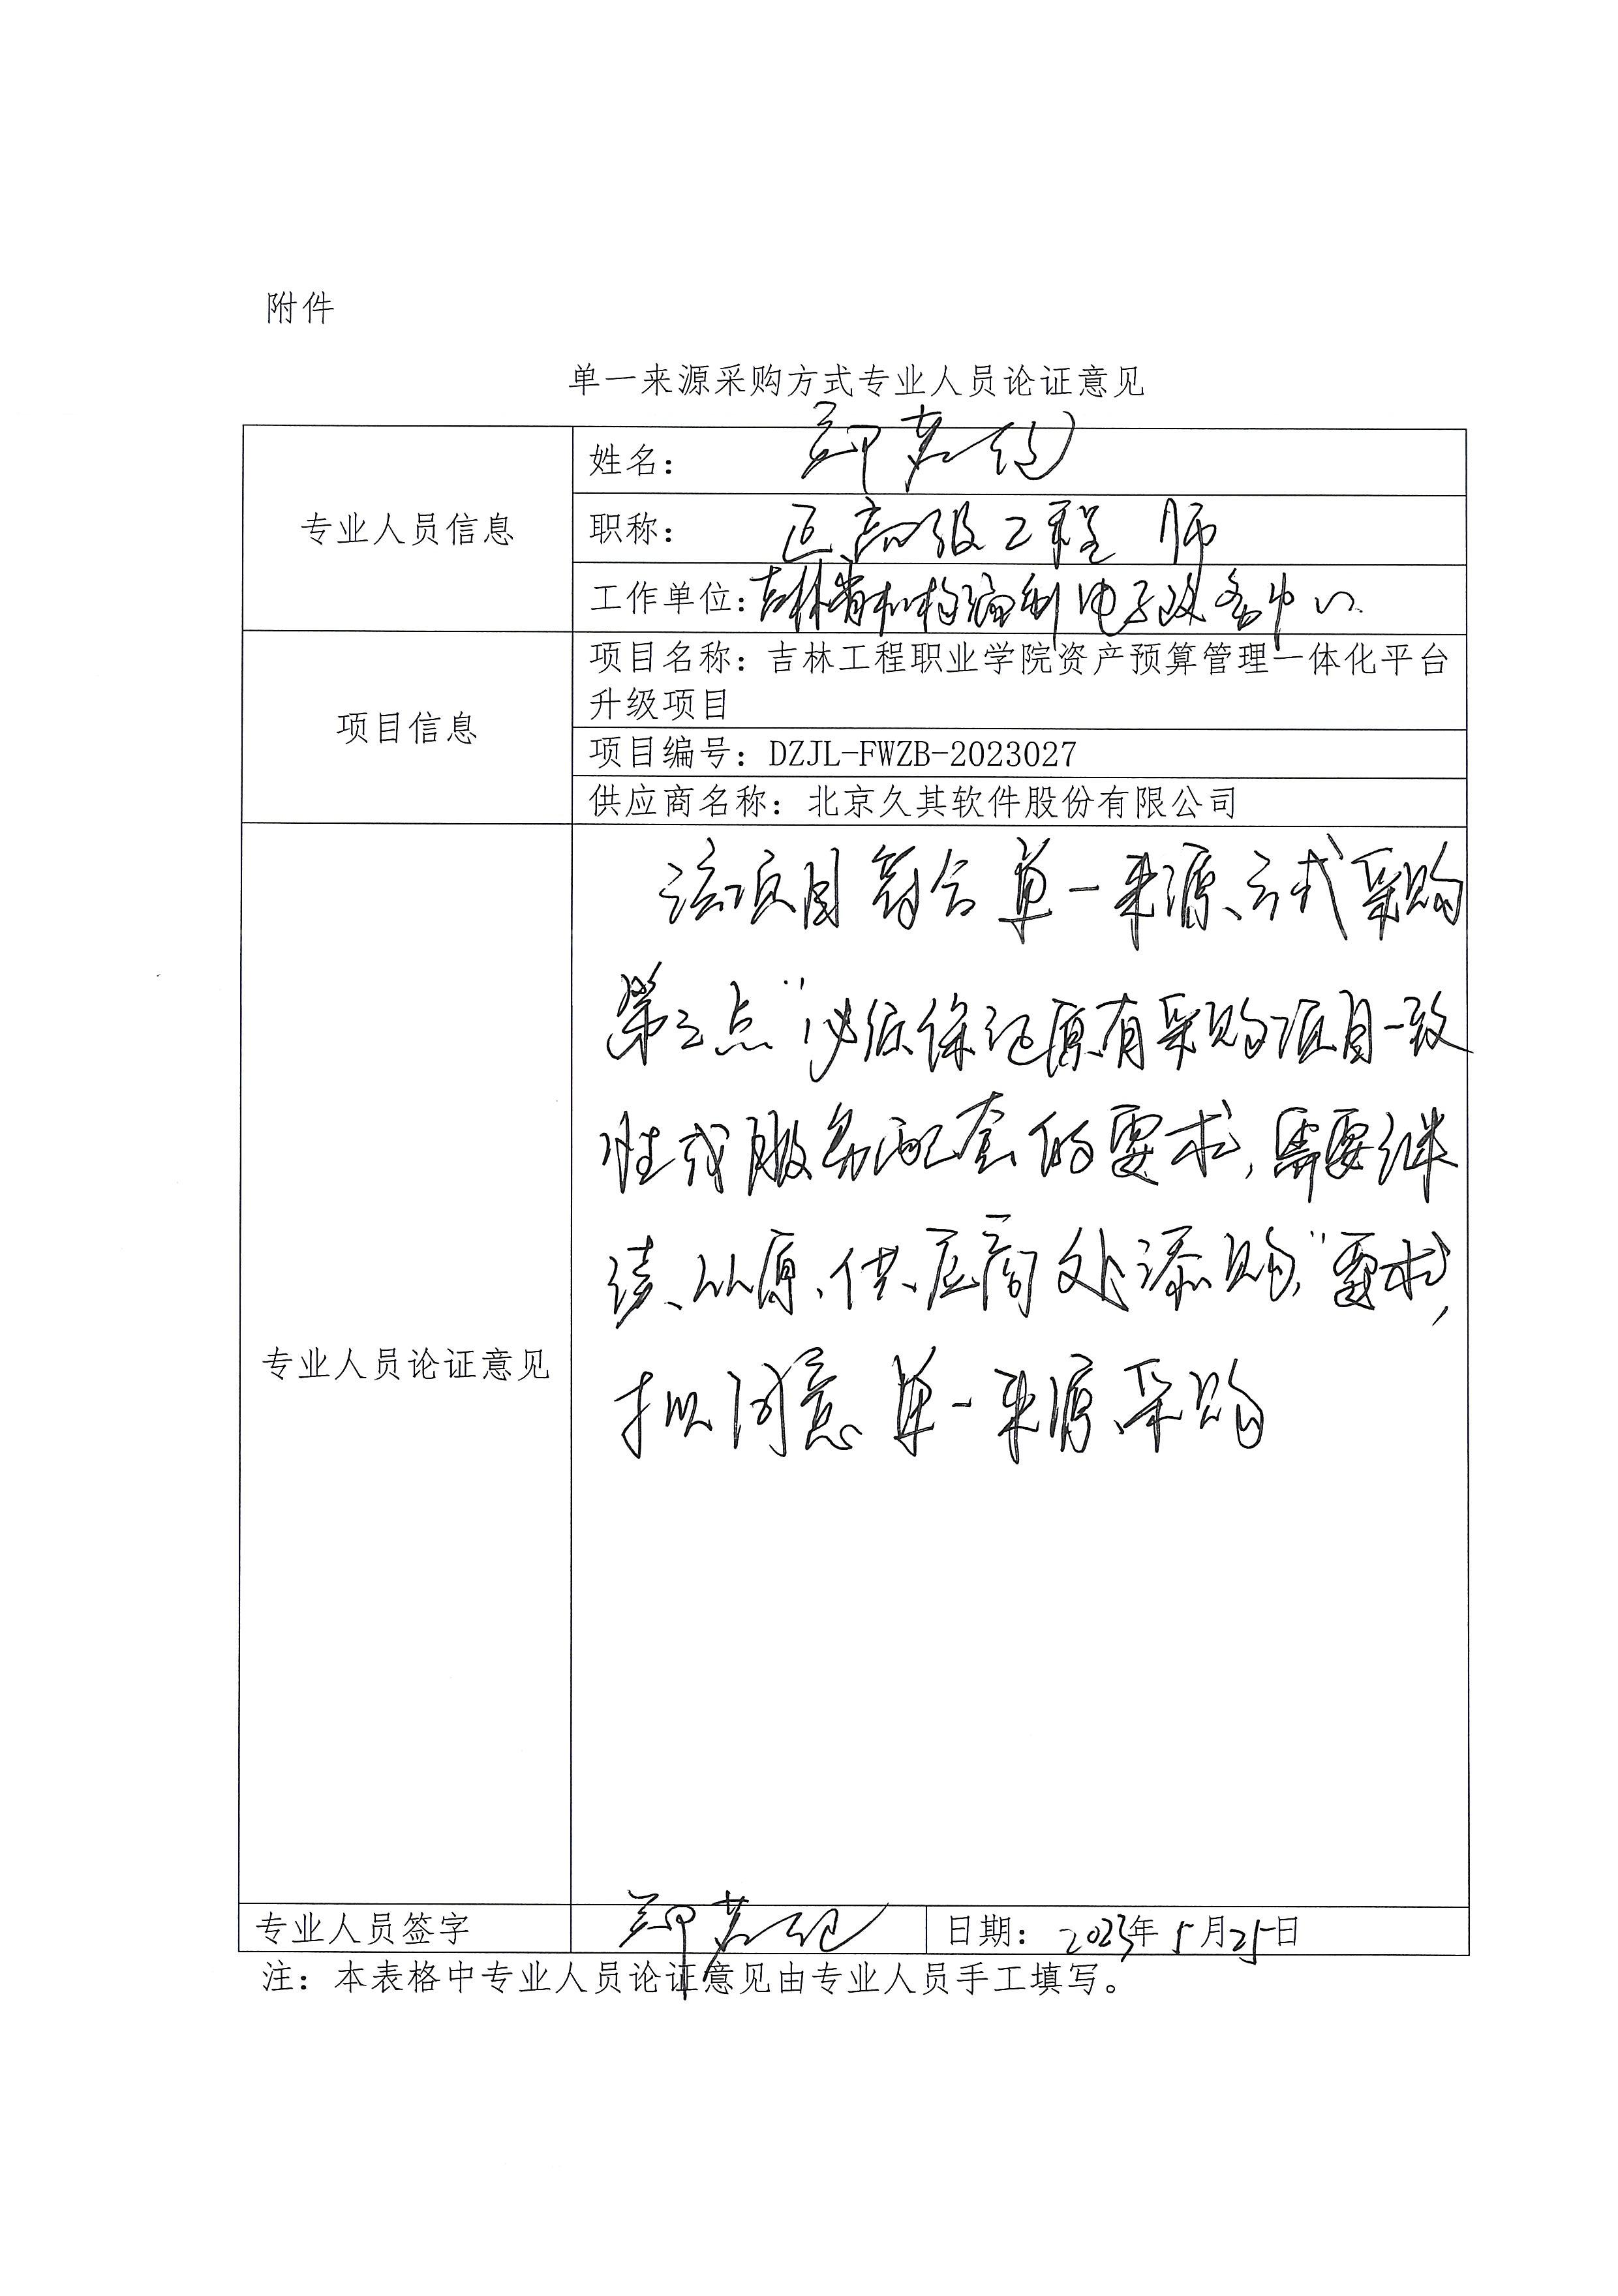 附件
单一来源采购方式专业人员论证意见
专业人员信息
姓名：
职称：正高级工程师
工作单位：吉林省机构编制电子政务中心
项目信息
项目名称：吉林工程职业学院资产预算管理一体化平台
升级项目
项目编号：DZJL-FWZB-2023027
供应商名称：北京久其软件股份有限公司
专业人员论证意见
该项目符合单一来源方式采购
第三点“必须保证原有采购项目一致
性或服务配套的要求，需要继
续从原供应商处添购”要求，
拟同意单一来源采购
专业人员签字
日期：2023年5月25日
注：本表格中专业人员论证意见由专业人员手工填写。